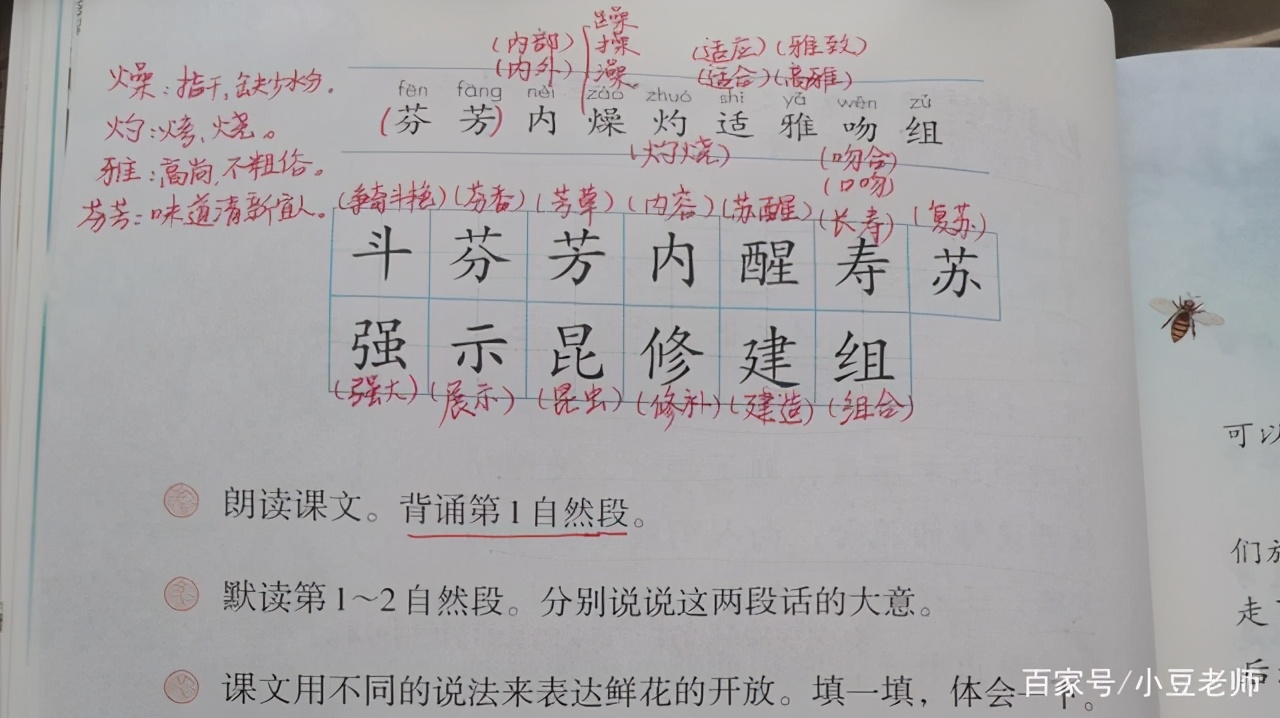 躁
(内部) 操 (适应) (雅致)
燥:指干,缺少水分。 (内外) 澡 (适合) (高雅)
fēn fāng nèi zào zhuó shì yǎ wěn zǔ
灼:烤、烧。 (芬 芳) 内 燥 灼 适 雅 吻 组
雅:高尚,不粗俗。 (灼烧) (吻合)
(口吻)
芬芳:味道清新宜人。 (争奇斗艳) (芬香) (芳草) (内容) (苏醒) (长寿) (复苏)
斗 芬 芳 内 醒 寿 苏
强 示 昆 修 建 组
(强大) (展示) (昆虫) (修补) (建造) (组合)
朗读课文。背诵第1自然段。
默读第1~2自然段。分别说说这两段话的大意。
课文用不同的说法来表达鲜花的开放。填一填,体会一下。
可以
们
走
后
百家号/小豆老师